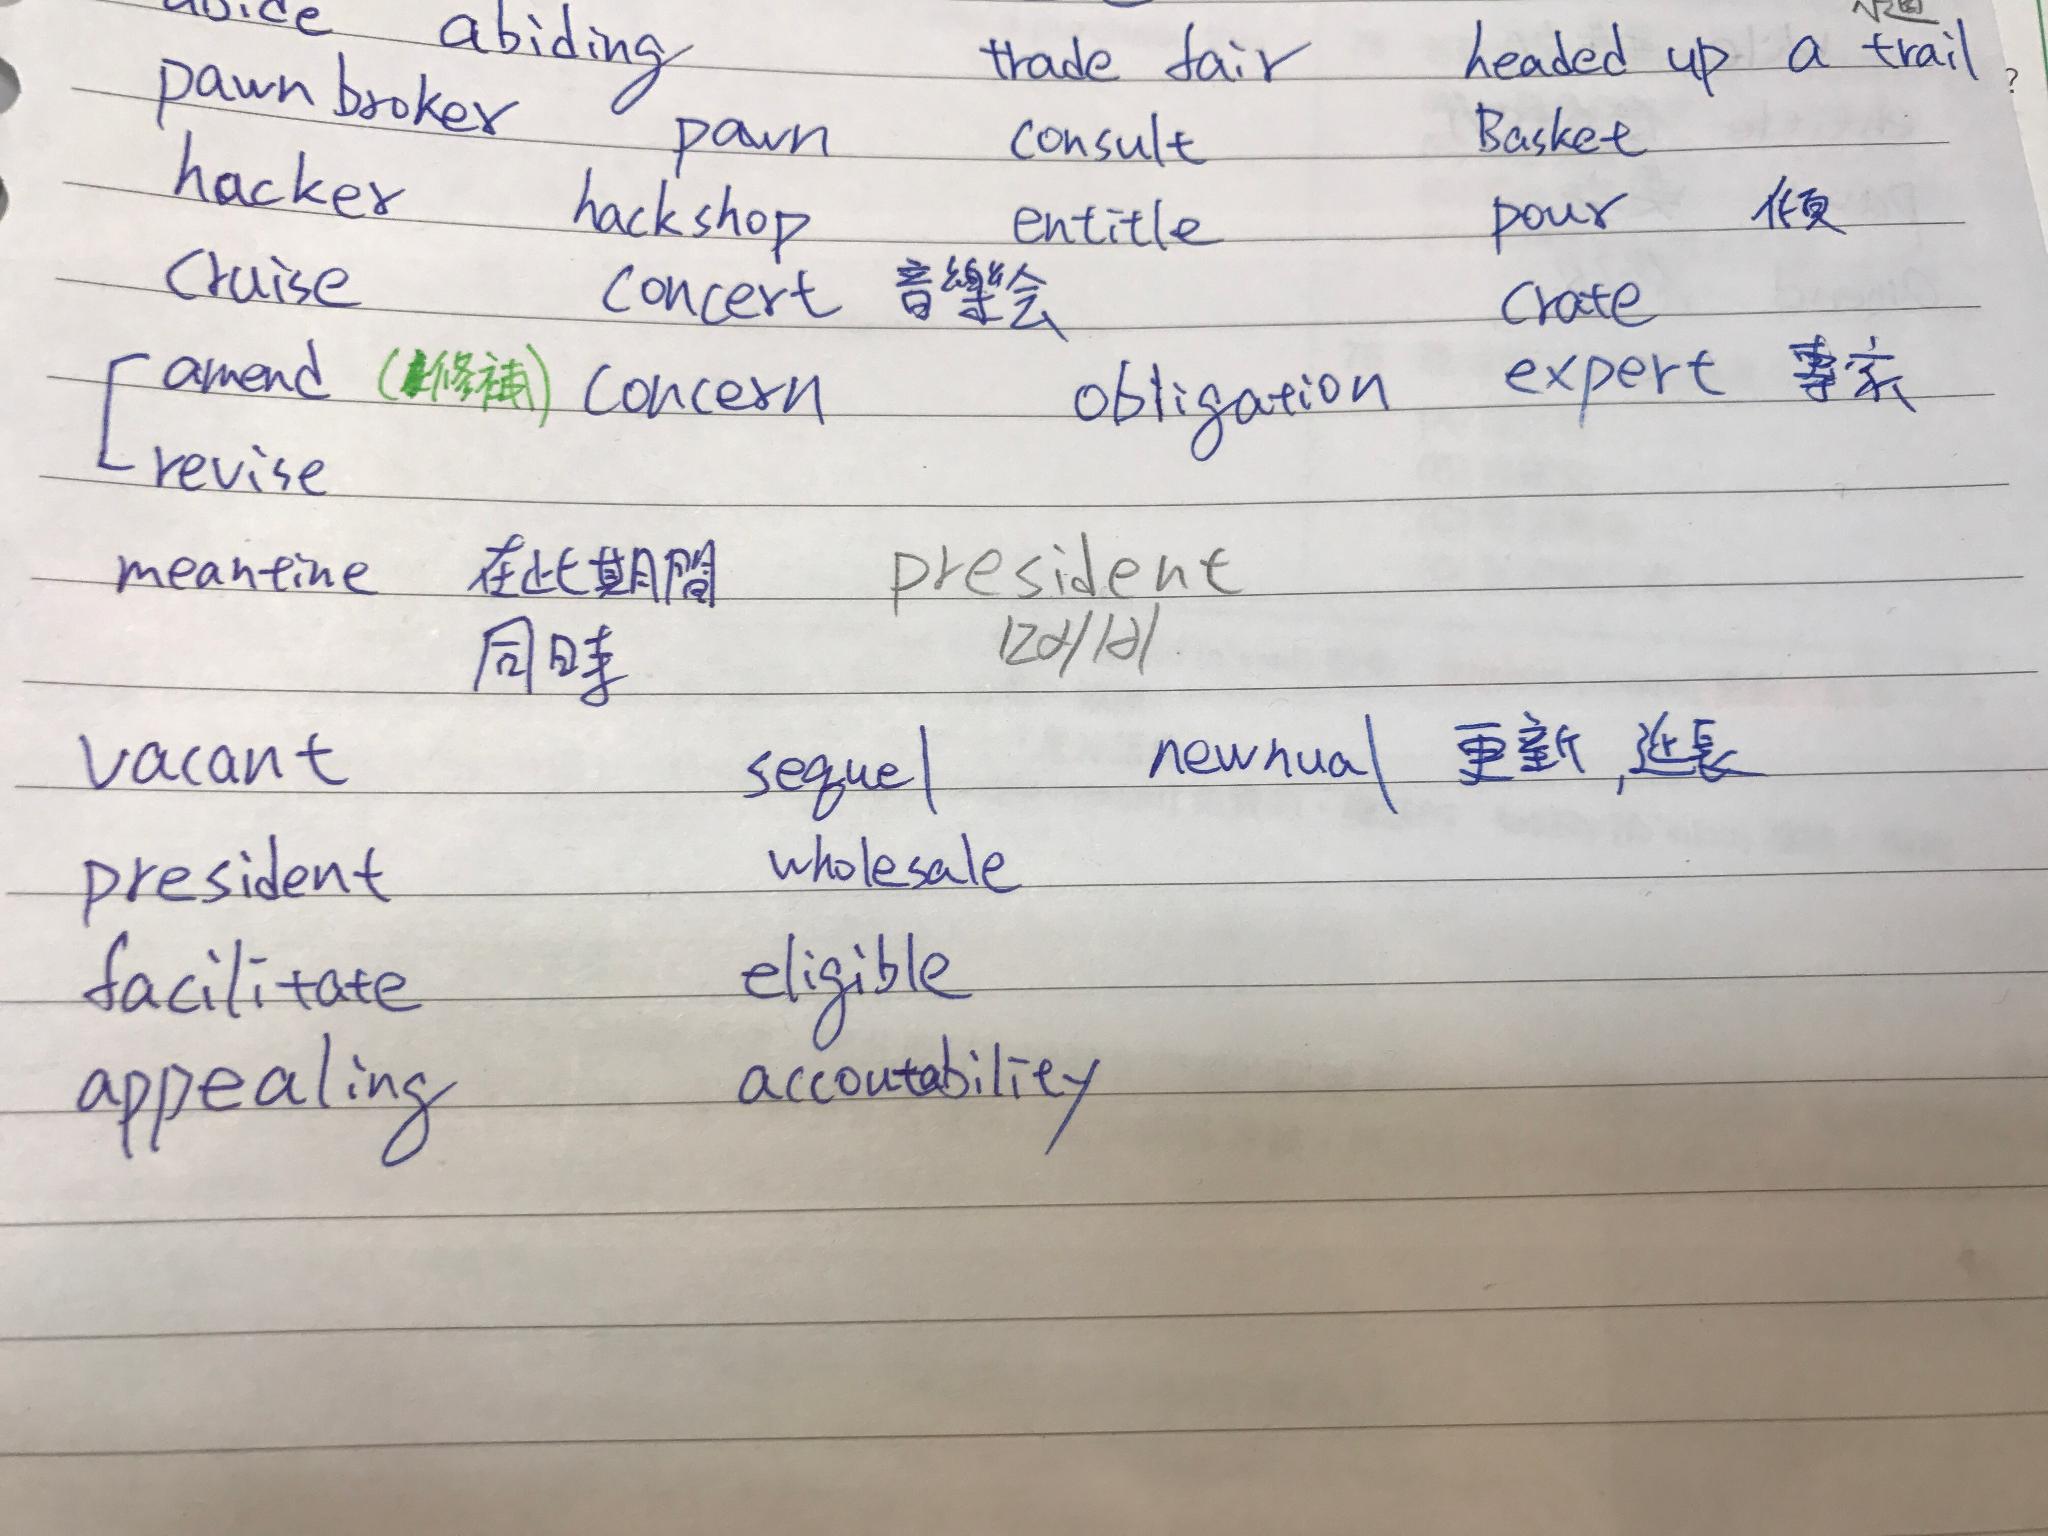 abiding trade fair headed up a trail ?
pawnbroker pawn consult Basket
hacker hackshop entitle pour 傾
cruise concert 音樂会 crate
amend (修補) concern obligation expert 專家
revise
meantine 在此期間 president
同時
vacant sequel newnual 更新,延長
president wholesale
facilitate eligible
appealing accoutability